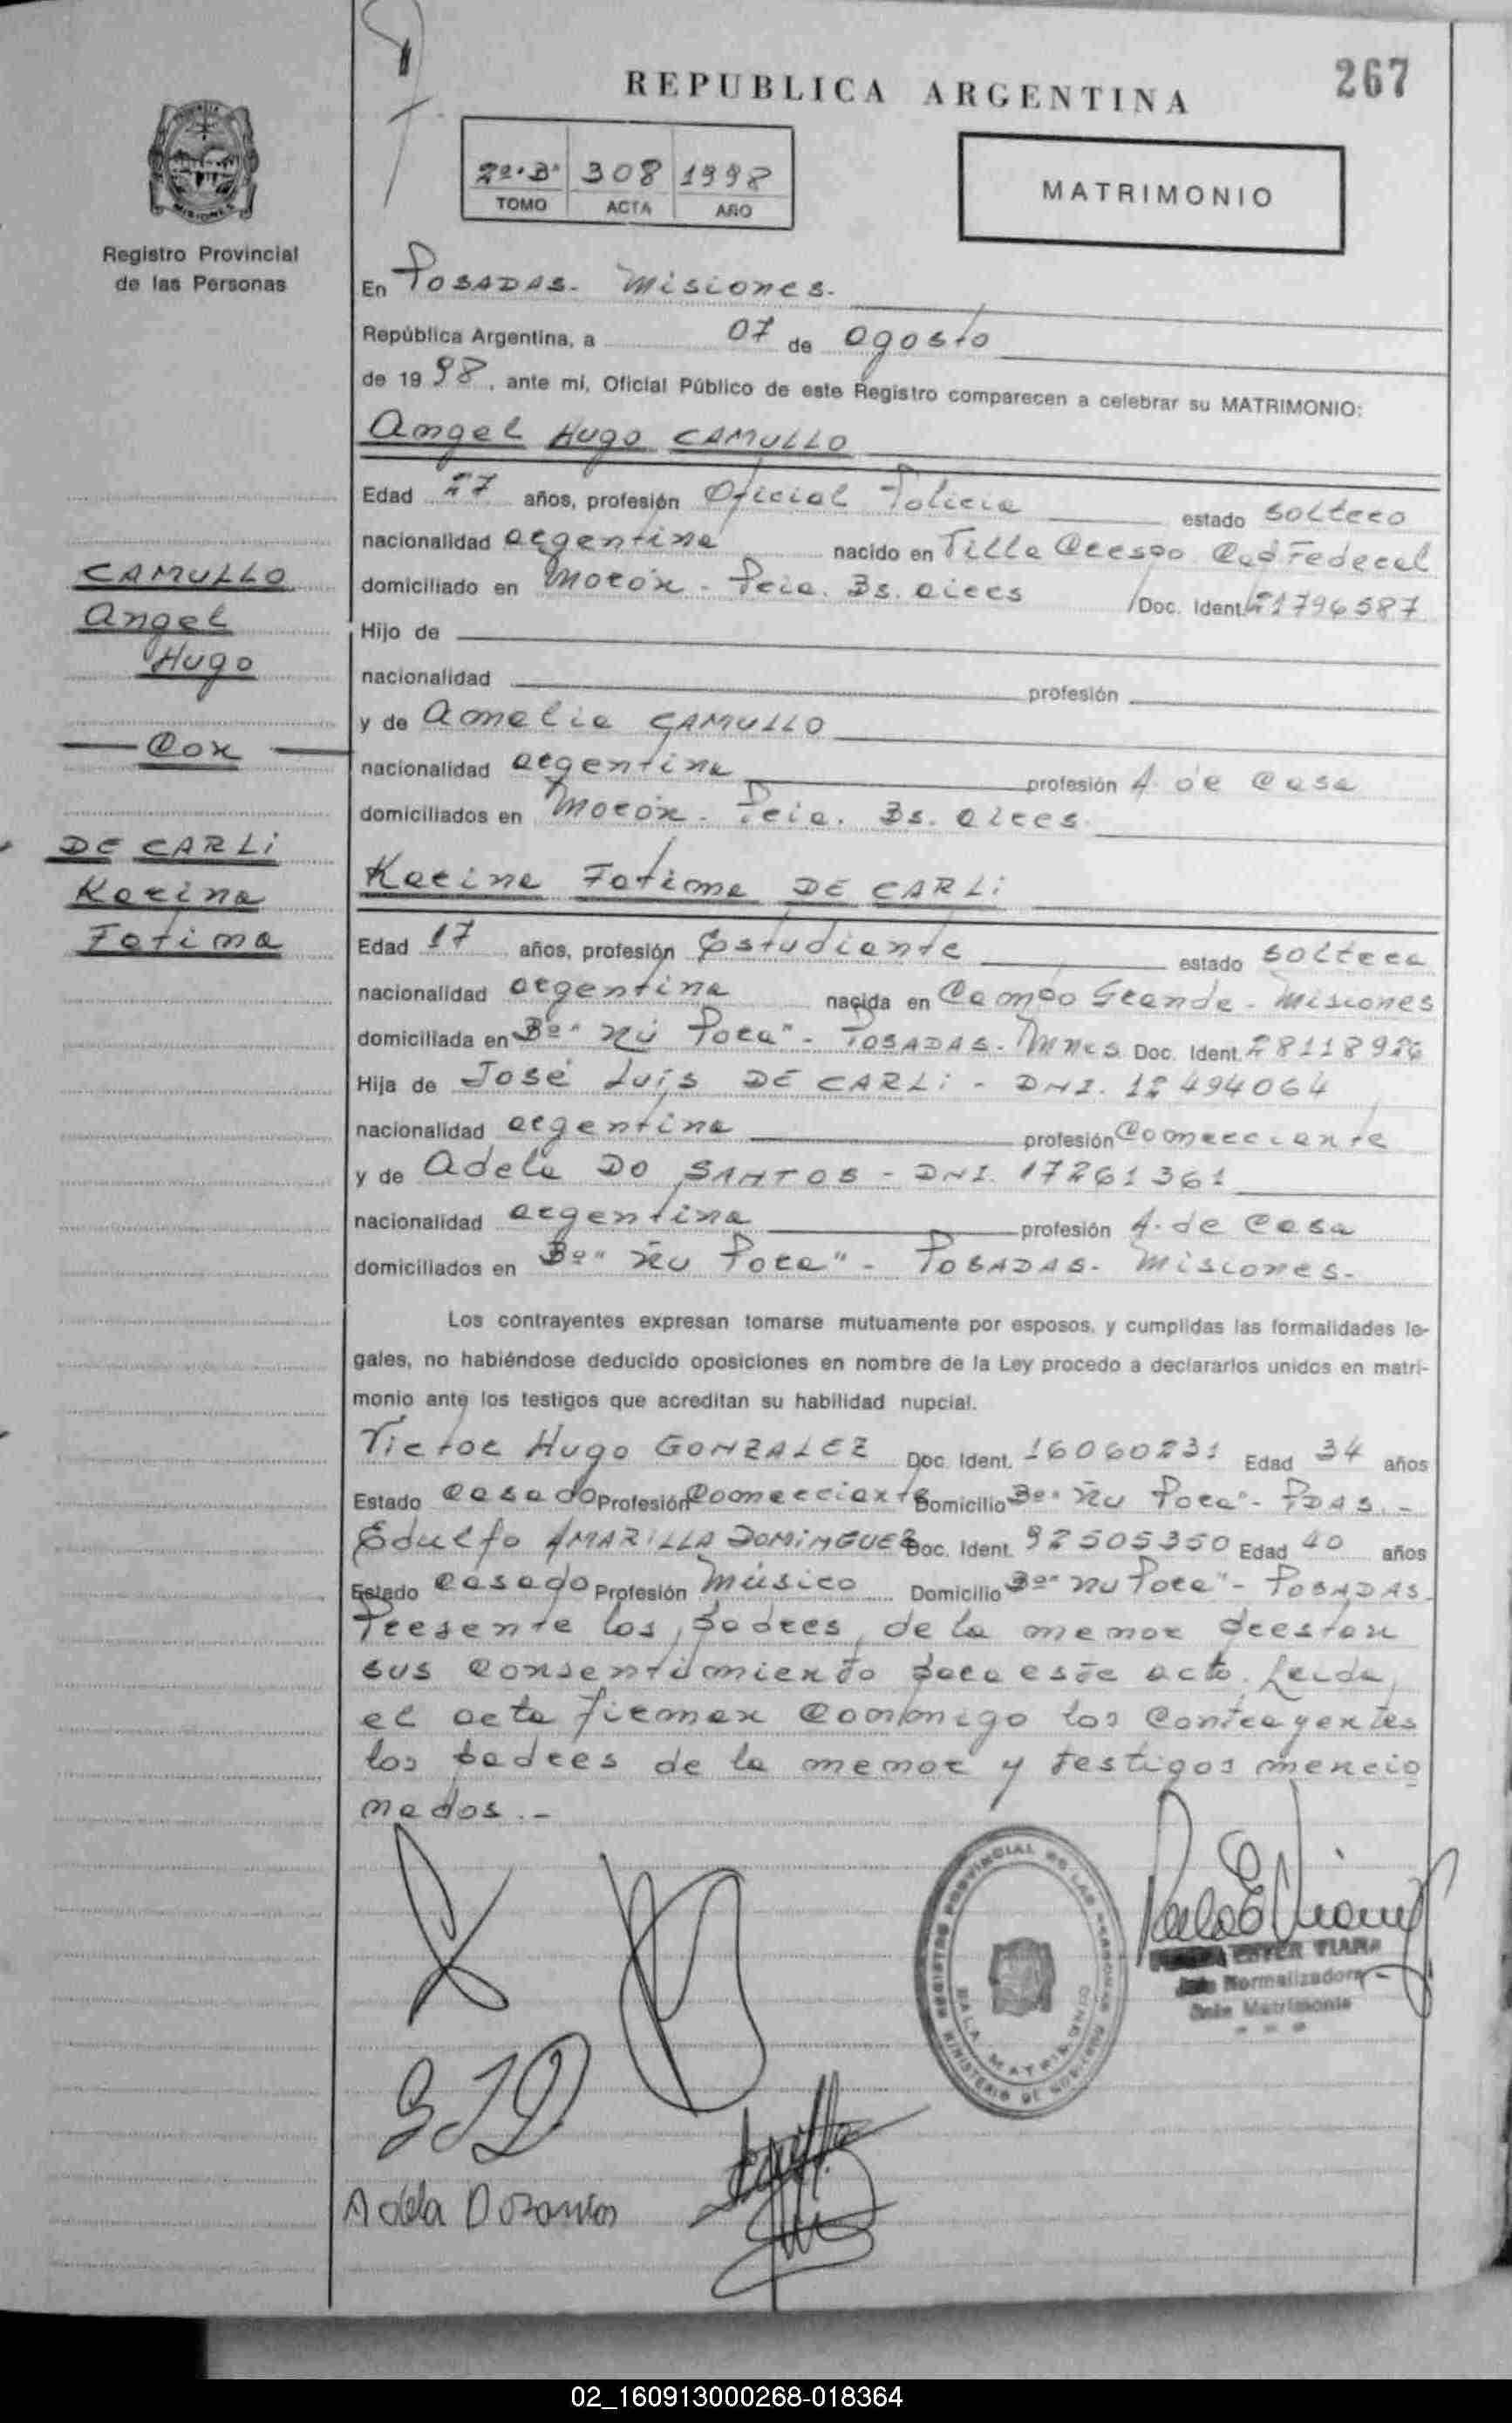 267
REPUBLICA ARGENTINA
2º.Bº 308 1998
TOMO ACTA AÑO
MATRIMONIO
MISIONES
Registro Provincial
de las Personas
En POSADAS- Misiones-
República Argentina, a 07 de agosto
de 1998, ante mí, Oficial Público de este Registro comparecen a celebrar su MATRIMONIO:
Angel Hugo CAMULLO
Edad 27 años, profesión Oficial Policia estado soltero
nacionalidad argentina nacido en Villa Crespo Cap Federal
domiciliado en Morón - Pcia. Bs. aires Doc. Ident. 21796587
Hijo de
nacionalidad profesión
y de Amelia CAMULLO
nacionalidad argentina profesión A. de Casa
domiciliados en Morón - Pcia. Bs. aires
CAMULLO
Angel
Hugo
Con
DE CARLi
Karina
Fatima
Karina Fatima DE CARLi
Edad 17 años, profesión Estudiante estado soltera
nacionalidad argentina nacida en Campo Grande - Misiones
domiciliada en Bº "Ñú Porá" - POSADAS - Mnes Doc. Ident. 28118926
Hija de José Luis DE CARLi - DNI. 12494064
nacionalidad argentina profesión Comerciante
y de Adela DO SANTOS - DNI. 17261361
nacionalidad argentina profesión A. de Casa
domiciliados en Bº "Ñu Pora" - POSADAS - Misiones-
Los contrayentes expresan tomarse mutuamente por esposos, y cumplidas las formalidades le-
gales, no habiéndose deducido oposiciones en nombre de la Ley procedo a declararlos unidos en matri-
monio ante los testigos que acreditan su habilidad nupcial.
Victor Hugo GONZALEZ Doc. Ident. 16060231 Edad 34 años
Estado Casado Profesión Comerciante Domicilio Bº "Ñu Pora" - PDAS.-
Edulfo AMARILLA DOMINGUEZ Doc. Ident. 92505350 Edad 40 años
Estado Casado Profesión Músico Domicilio Bº "Ñu Pora" - POSADAS
Presente los padres de la menor prestan
sus consentimiento para este acto. Leida
el acta firman conmigo los contrayentes
los padres de la menor y testigos mencio
nados.-
REGISTRO PROVINCIAL DE LAS PERSONAS
SALA MATRIMONIO
MINISTERIO DE GOBIERNO
ESTER VIANA
Normalizadora
Matrimonio
Adela Dosantos
02_160913000268-018364